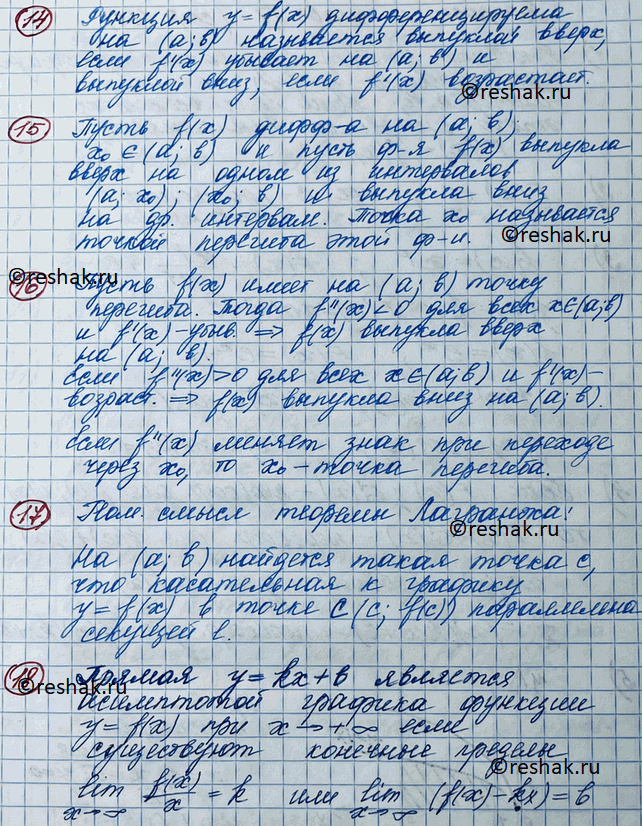 14 Функция y = f(x) дифференцируема
на (a; в) называется выпуклой вверх,
если f'(x) убывает на (a; в) и
выпуклой вниз, если f'(x) возрастает.
©reshak.ru
15 Пусть f(x) дифф-а на (a; в),
x₀ ∈ (a; в) и пусть ф-я f(x) выпукла
©reshak.ru
вверх на одном из интервалов
(a; x₀); (x₀; в) и выпукла вниз
на др. интервал. Точка x₀ называется
точкой перегиба этой ф-и.
©reshak.ru
©reshak.ru
16 Пусть f(x) имеет на (a; в) точку
перегиба. Тогда f''(x)<0 для всех x∈(a;в)
и f'(x) - убыв. ⇒ f(x) выпукла вверх
на (a; в).
Если f''(x)>0 для всех x∈(a;в) и f'(x)-
возраст. ⇒ f(x) выпукла вниз на (a; в).
Если f''(x) меняет знак при переходе
через x₀, то x₀ - точка перегиба.
17 Геом. смысл теоремы Лагранжа:
©reshak.ru
На (a; в) найдется такая точка c,
что касательная к графику
y = f(x) в точке C (c; f(c)) параллельна
секущей l.
18 Прямая y = kx + в является
©reshak.ru
асимптотой графика функции
y = f(x) при x → +∞ если
существуют конечные пределы
lim x→∞ f(x)/x = k или lim x→∞ (f(x) - kx) = в
©reshak.ru